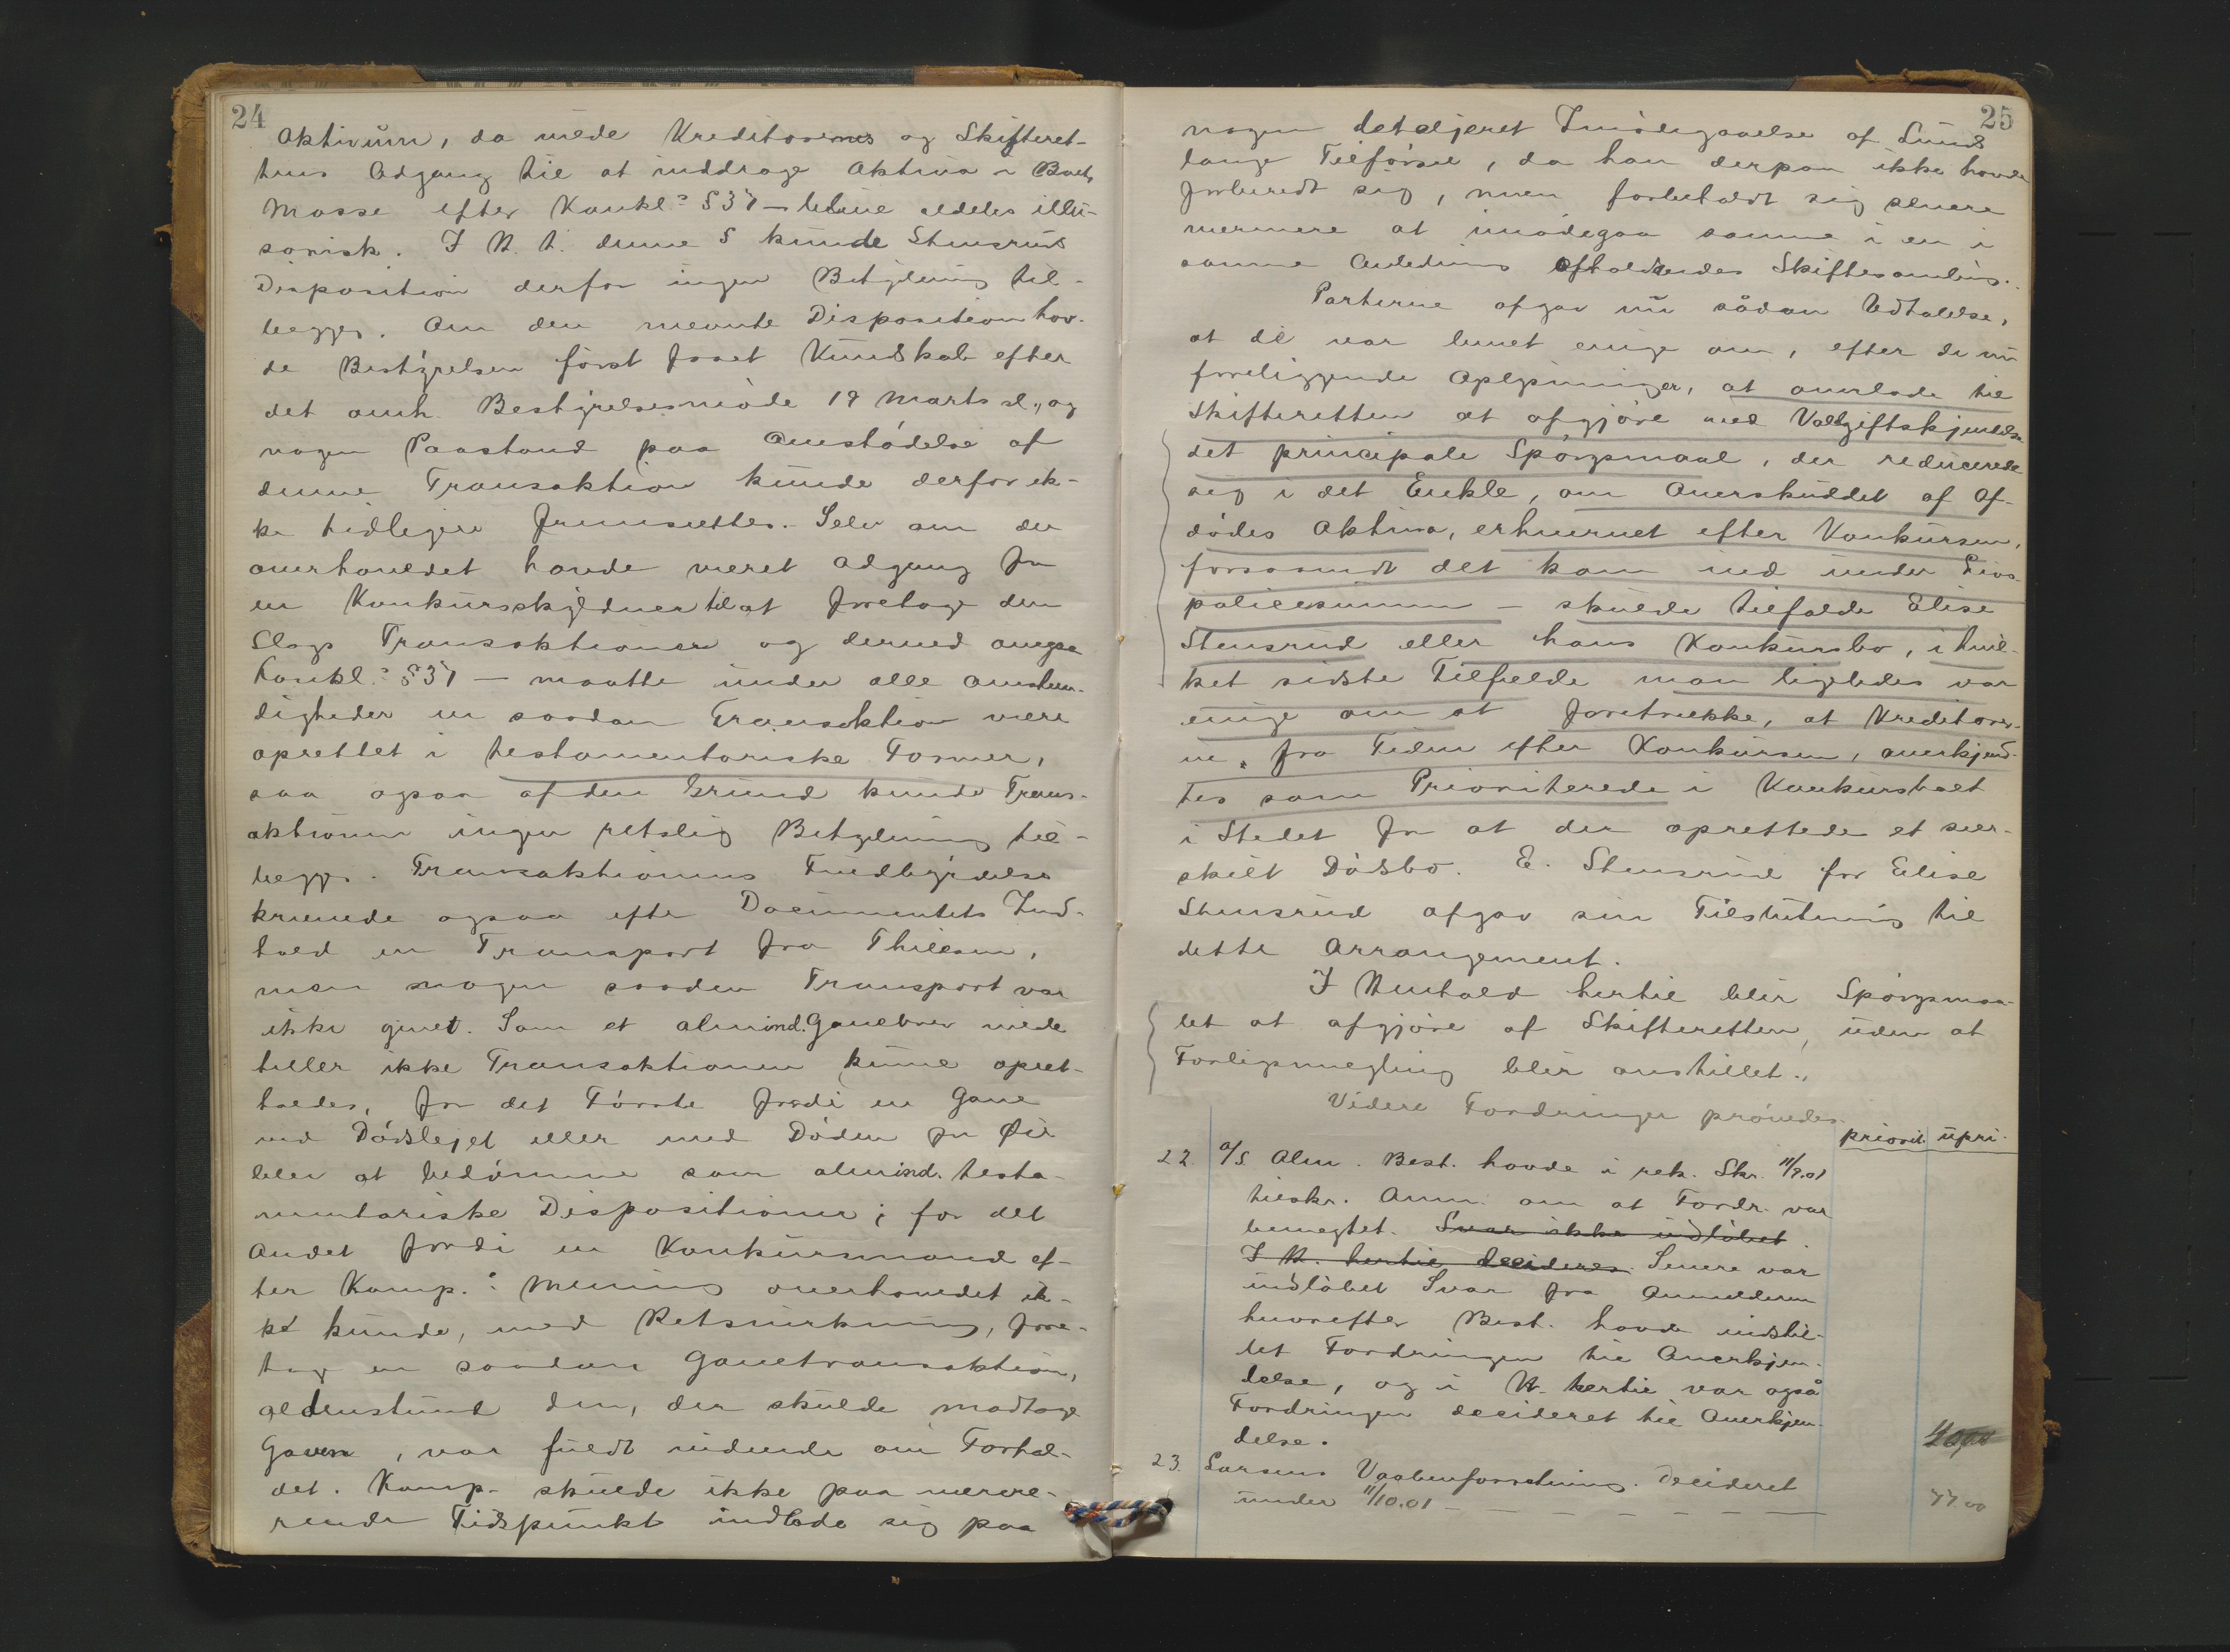 24
Aktivum, da vilde Kreditorernes og Skifteret-
tens Adgang til at inddrage Aktiva i Boets
Masse efter Konkl.s § 37 – blive aldeles illu-
sorisk. I H. t. denne § kunde Stensruds
Disposition derfor ingen Betydning til-
lægges. Om den nævnte Disposition hav-
de Bestyrelsen først faaet Kundskab efter
det omh. Bestyrelsesmøde 19 Marts sl., og
nogen Paastand paa Omstødelse af
denne Transaktion kunde derfor ik-
ke tidligere fremsættes. Selv om der
overhovedet havde været Adgang for
en Konkursskyldner til at foretage den
Slags Transaktioner og derved omgaa
Konkl.s § 37 – maatte under alle Omstæn-
digheder en saadan Transaktion være
oprettet i testamentariske Former,
saa ogsaa af den Grund kunde Trans-
aktionen ingen retslig Betydning til-
lægges. Transaktionens Fuldbyrdelse
krævede ogsaa efter Documentets Ind-
hold en Transport fra Thilesen,
men nogen saadan Transport var
ikke givet. Som et almind. Gavebrev vilde
heller ikke Transaktionen kunne opret-
holdes, for det Første fordi en Gave
ved Dødslejet eller med Døden for Øie
blev at bedømme som almind. testa-
mentariske Dispositioner; for det
Andet fordi en Konkursmand ef-
ter Komp.s Mening overhovedet ik-
ke kunde, med Retsvirkning, fore-
tage en saadan Gavetransaktion,
aldenstund den, der skulde modtage
Gaven, var fuldt vidende om Forhol-
det. Komp. skulde ikke paa nærvæ-
rende Tidspunkt indlade sig paa
25
nogen detaljeret Imødegaaelse af Lunds
lange Tilførsel, da han derpaa ikke havde
forberedt sig, men forbeholdt sig senere
nærmere at imødegaa samme i en i
samme Anledning afholdendes Skiftesamling.
Parterne afgav nu sådan Udtalelse,
at de var blevet enige om, efter de nu
foreliggende Oplysninger, at overlade til
Skifteretten at afgjøre ved Voldgiftskjendelse
det principale Spørgsmaal, der reducerede
sig i det Enkle, om Overskuddet af Af-
dødes Aktiva, erhvervet efter Konkursen,
forsaavidt det kom ind under Livs-
policesummen – skulde tilfalde Elise
Stensrud eller hans Konkursbo, i hvil-
ket sidste Tilfælde man ligeledes var
enige om at foretrække, at Kreditorer-
ne, fra Tiden efter Konkursen, anerkjend-
tes som Prioriterede i Konkursboet
i Stedet for at der oprettedes et sær-
skilt Dødsbo. E. Stensrud for Elise
Stensrud afgav sin Tilslutning til
dette Arrangement.
I Henhold hertil blir Spørgsmaa-
let at afgjøre af Skifteretten, uden at
Forligsmægling blir anstillet.,
Videre Fordringer prøvedes
priorit. upri.
22. A/S Alm. Best. havde i rek. Skr. 11/9.01
tilskr. Anm. om at Fordr. var
benegtet. Svar ikke indløbet.
I H. hertil decideres. Senere var
indløbet Svar fra Anmelderen
hvorefter Best. havde indstil-
let Fordringen til Anerkjen-
delse, og i H. hertil var også
Fordringen decideret til Anerkjen-
delse.
23. Larsens Vaabenforretning. Decideret
under 11/10.01 – – – – – – – 77.00